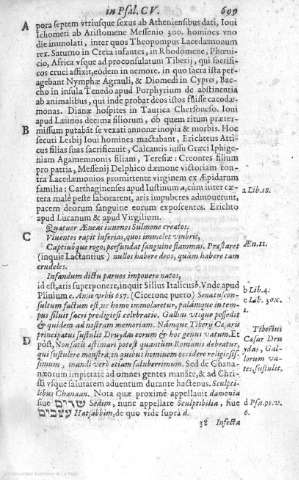 in Psal. CV. 609
A pora septem vtriusque sexus ab Atheniensibus dati, Ioui
Ichometi ab Aristomene Messenio 300. homines vno
die immolati, inter quos Theopompus Lacedæmonum
rex. Saturno in Creta infantes, in Rhodomene, Phœnicio,
Africa vsque ad proconsulatum Tiberij, qui sacrificos
cruci affixit, eôdem in nemore. in quo sacra ista peragebant
Nymphæ Agrauli, & Diomedi in Cypro, Baccho
in insula Tenedo apud Porphyrium de abstinentia
ab animalibus, qui inde probat deos istos fuisse cacodæmonas.
Dianæ hospites in Taurica Chersoneso. Ioui
apud Latinos decima filiorum, ob quem ritum prætermissum
B putabãt se vexari annonæ inopia & morbis. Hoc
fuceti Lesbij Ioui homines mactabant, Erichteus Atticus
filias suas sacrificauit, Calcantis iussu Græci Iphigeniam
Agamemnonis filiam, Teresiæ: Creontes filium
pro patria, Messenij Delphico dæmone victoriam contra
Lacedæmonios promittente virginem ex Æpidarum
familia: Carthaginenses apud Iustinum a, cum inter cætera
male peste laborarent, aris impuberes admouerunt,
pacem deorum sanguine eorum exposcentes. Erichto
apud Lucanum & apud Virgilium.
a Lib. 18.
Quatuor Æneas iuuenes Sulmone creatos,
C Viuentes rapit inferias, quos immolet vmbris,
Captiuoque rogo, perfundat sanguine flammas. Præstaret
Æn. 11.
(inquit Lactantius) nullos habere deos, quàm habere tam
crudeles.
Infandum dictu paruos imponere natos,
id est, aris superponere, inquit Silius Italicus b. Vnde apud
b Lib. 4.
Plinium c. Anno vrbis 657. (Cicerone puero) Senatusconsultum
c Lib. 30. c. 1.
factum est, ne homo immolaretur, palámque in tempus
illud sacri prodigiosi celebratio. Gallias vtique possedit
& quidem ad nostram memoriam. Námque Tiberij Cæsaris
Tiberius
principatus sustulit Druydas eorum & hoc genus vatum. Et
Cæsar Druydas,
D post, Non satis æstimari potest quantum Romanis debeatur,
Gallorum vates,
qui sustulere monstra, in quibus hominem occidere religiosissimum,
sustulit.
mandi verò etiam saluberrimum. Sed de Chananæorum
impietate ad omnes gentes manare, & ad Christi
vsque salutarem aduentum durante hactenus. Sculptilibus
Chanaan. Nota quæ proximè appellauit dæmonia
שדים Sedim, nunc appellare Sculptilia, siue
d Psa. 95. v.
עצבים Hatsabbim, de quo vide supra d.
6.
38 Infecta